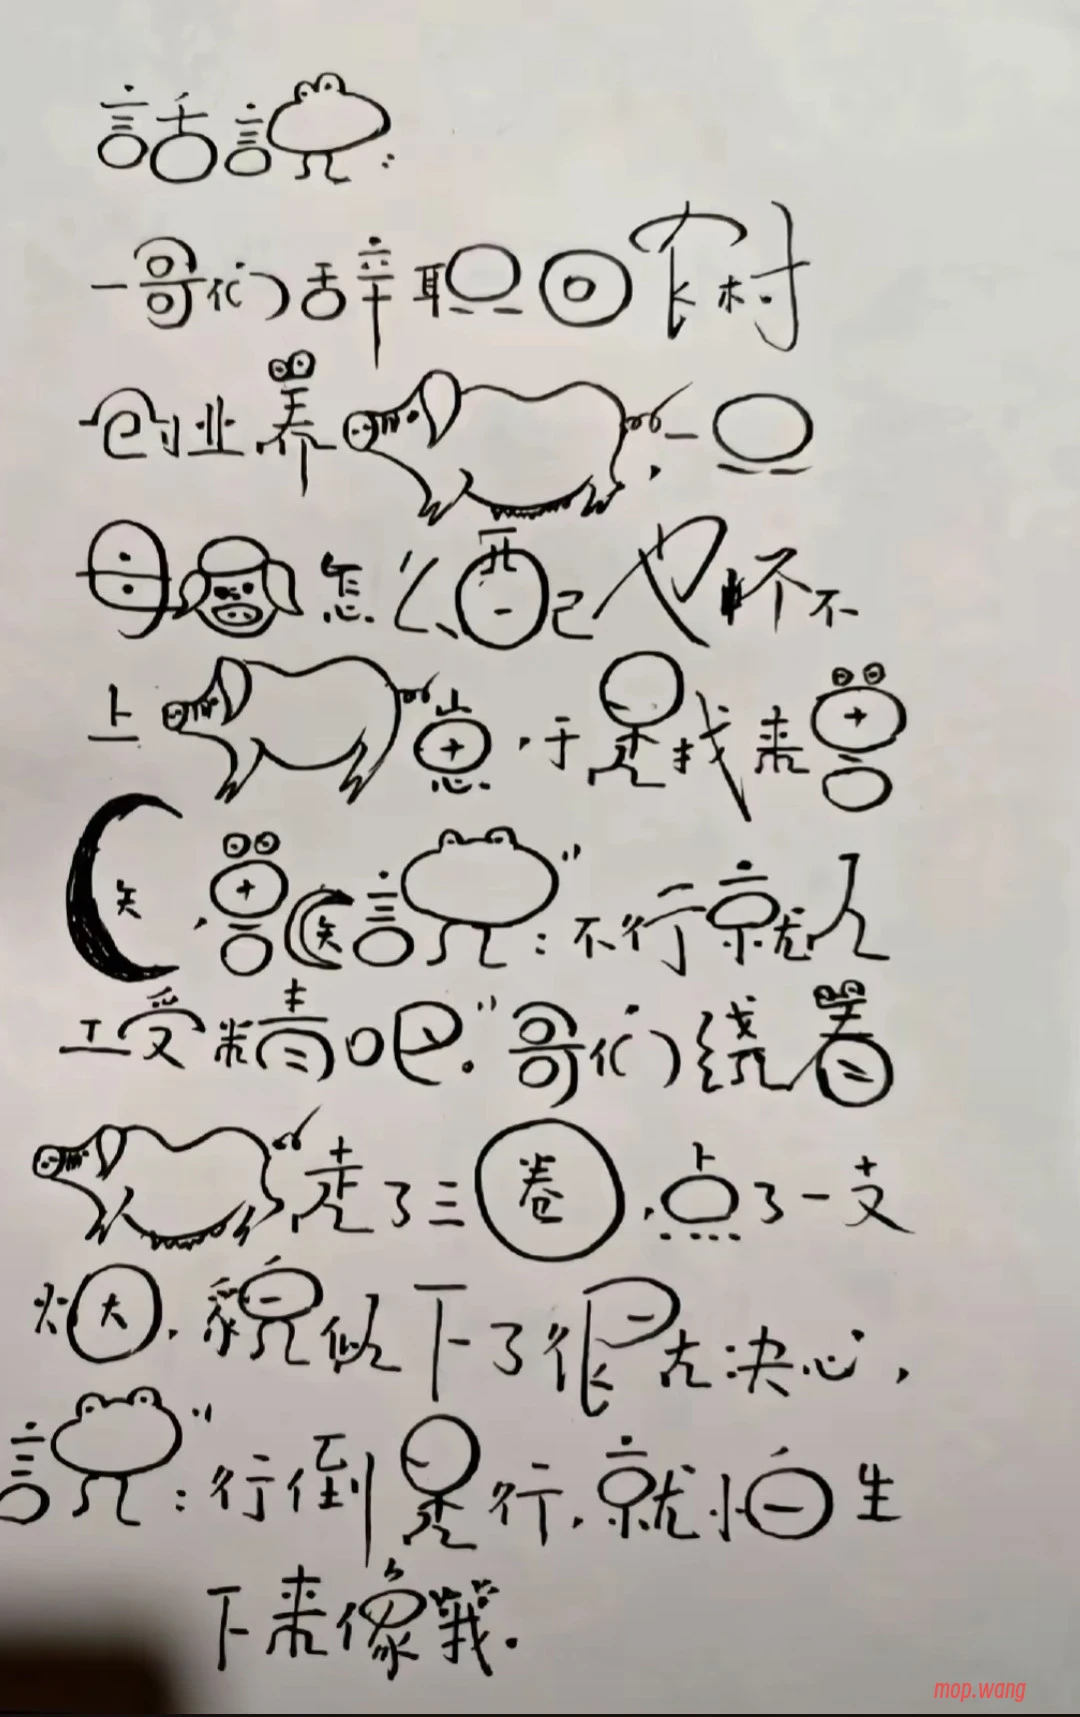 話說:
一哥们辞职回农村
创业养猪,一只
母猪怎么配也怀不
上猪崽,于是找来兽
医,兽医說:"不行就人
工受精吧."哥们绕着
猪走了三圈,点了一支
烟,貌似下了很大决心,
說:"行倒是行,就怕生
下来像我.
mop.wang